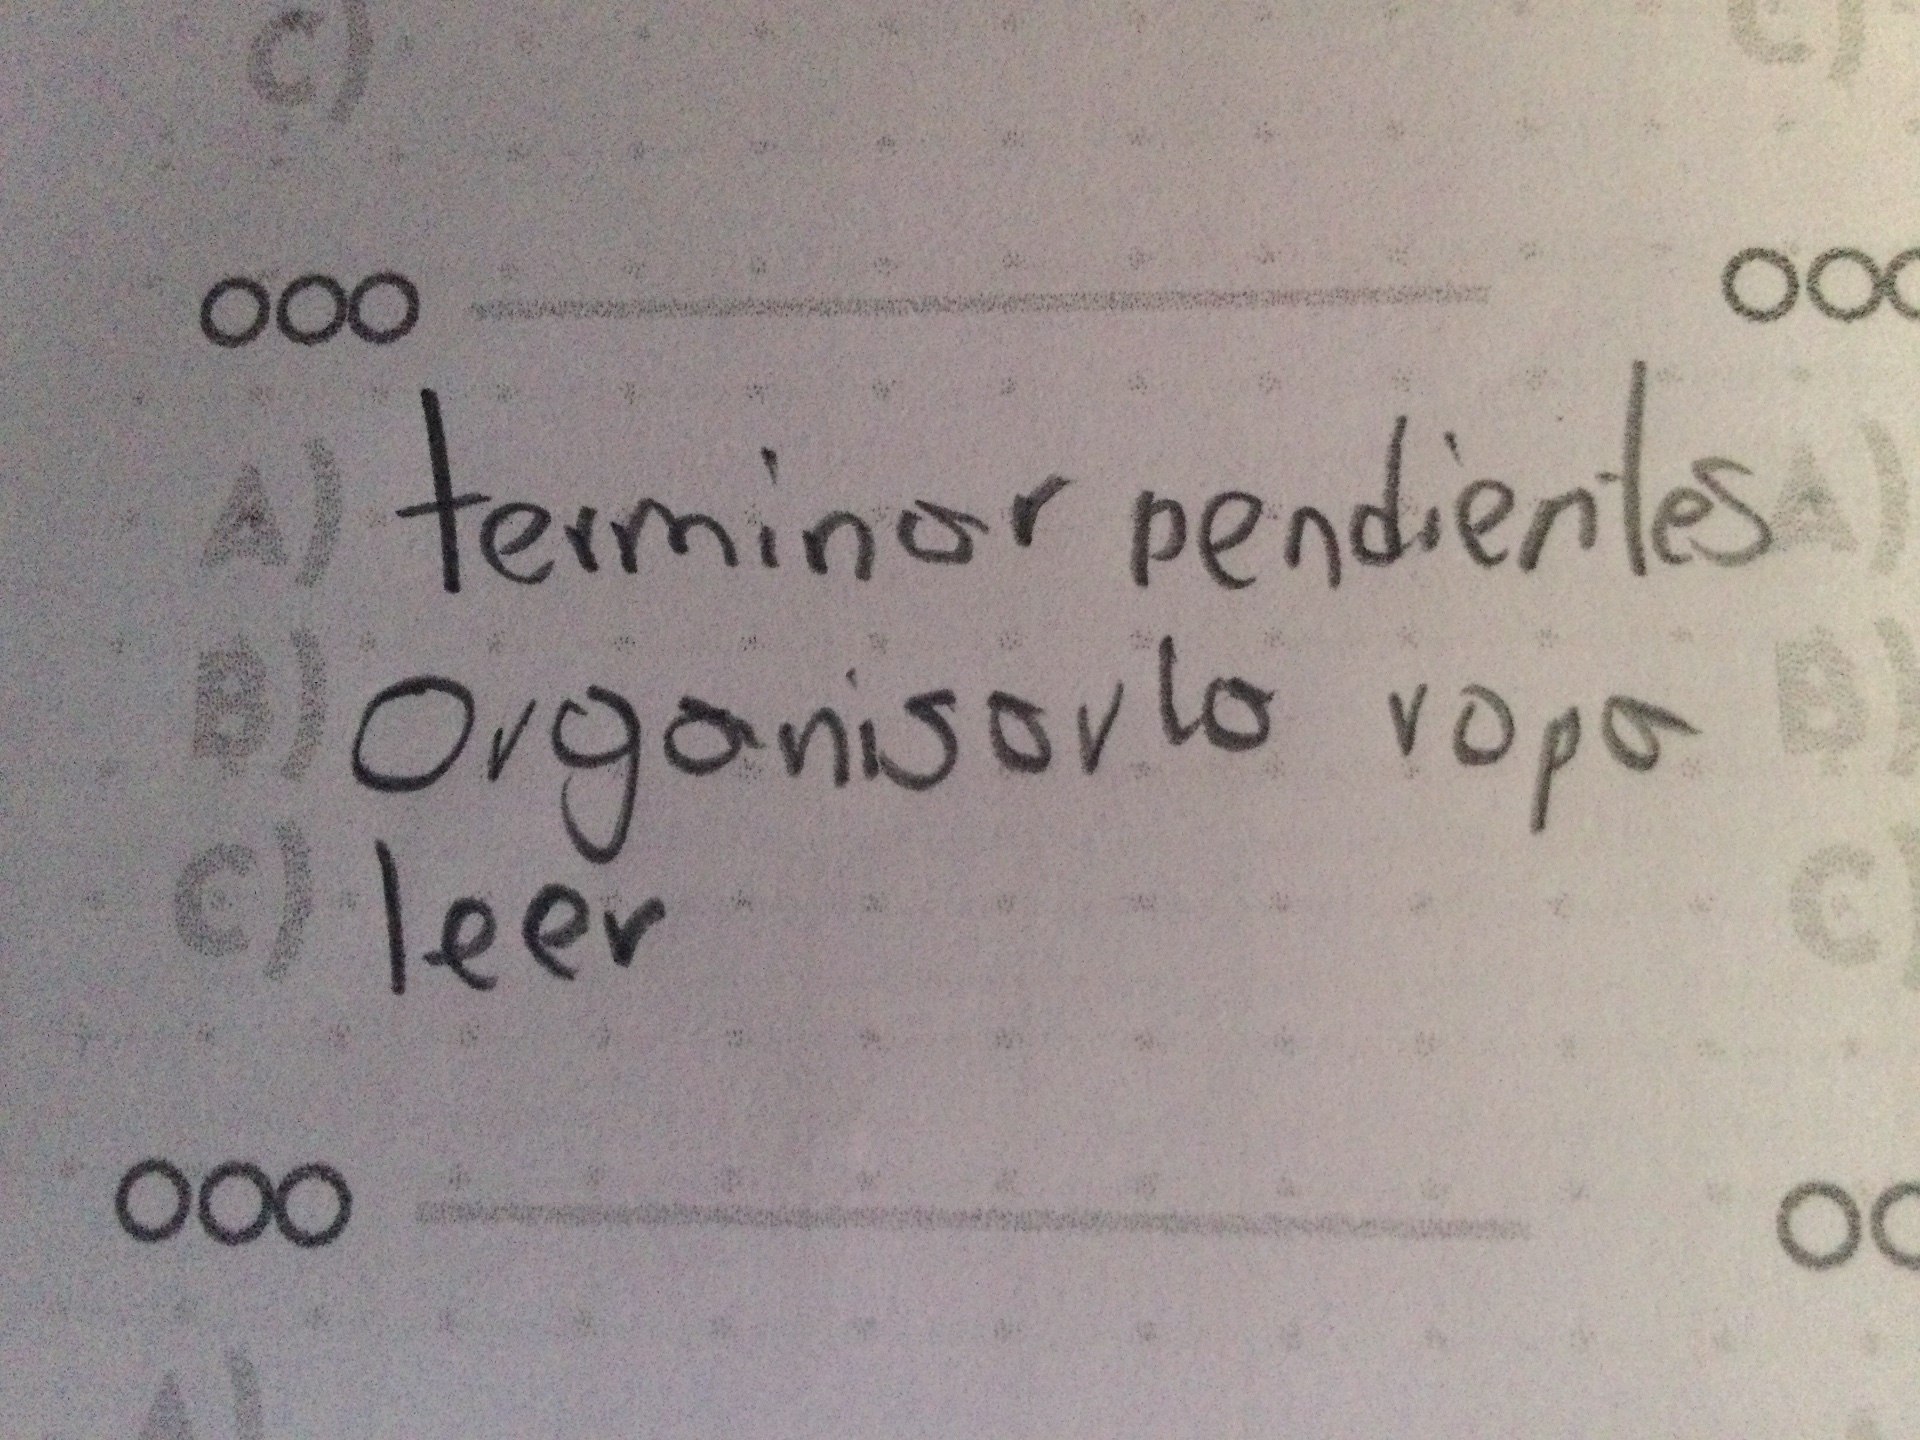 C) C)
OOO OOO
A) terminar pendientes A)
B) Organisar la ropa B)
C) leer C)
OOO OO
A)